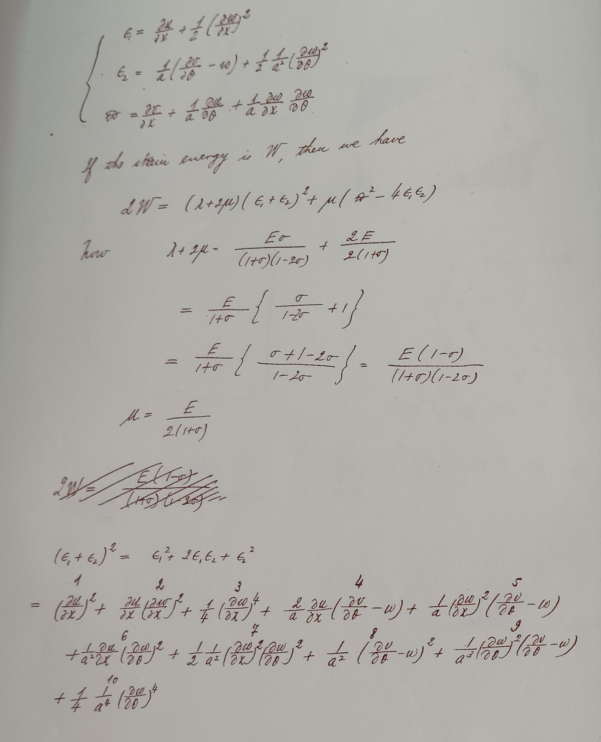 ϵ₁ = ∂u/∂x + 1/2 (∂w/∂x)²
ϵ₂ = 1/a (∂v/∂θ − w) + 1/2 1/a² (∂w/∂θ)²
ϖ = ∂v/∂x + 1/a ∂u/∂θ + 1/a ∂w/∂x ∂w/∂θ
If the strain energy is W, then we have
2W = (λ+2μ)(ϵ₁+ϵ₂)² + μ(ϖ² − 4ϵ₁ϵ₂)
now λ+2μ = Eσ/((1+σ)(1−2σ)) + 2E/(2(1+σ))
= E/(1+σ) { σ/(1−2σ) + 1 }
= E/(1+σ) { (σ+1−2σ)/(1−2σ) } = E(1−σ)/((1+σ)(1−2σ))
μ = E/(2(1+σ))
2W = E(1−σ)/((1+σ)(1−2σ))
(ϵ₁+ϵ₂)² = ϵ₁² + 2ϵ₁ϵ₂ + ϵ₂²
1 2 3 4 5
= (∂u/∂x)² + ∂u/∂x (∂w/∂x)² + 1/4 (∂w/∂x)⁴ + 2/a ∂u/∂x (∂v/∂θ − w) + 1/a (∂w/∂x)² (∂v/∂θ − w)
6 7 8 9
+ 1/a² ∂u/∂x (∂w/∂θ)² + 1/2 1/a² (∂w/∂x)² (∂w/∂θ)² + 1/a² (∂v/∂θ − w)² + 1/a³ (∂w/∂θ)² (∂v/∂θ − w)
10
+ 1/4 1/a⁴ (∂w/∂θ)⁴